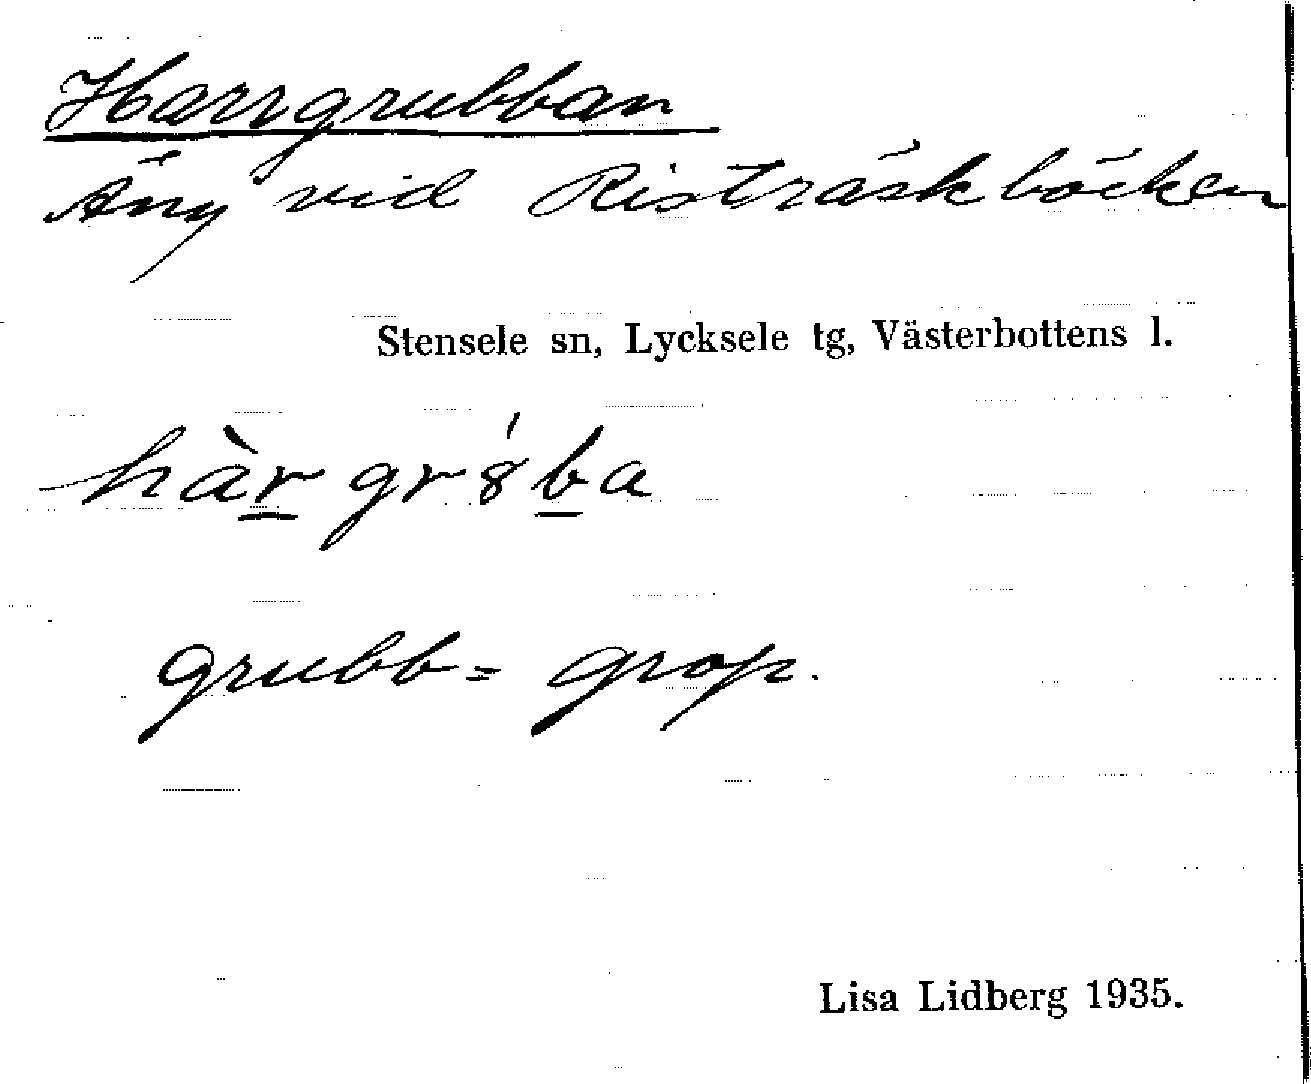 Harrgrubban
Äng vid Risträskbäcken
Stensele sn, Lycksele tg, Västerbottens l.
hàr̲gr8́b̲a
grubb = grop.
Lisa Lidberg 1935.